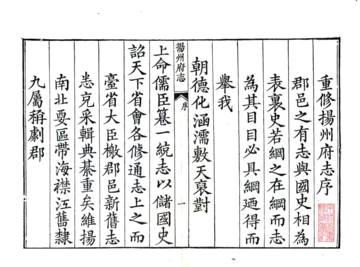 重修揚州府志序
郡邑之有志與國史相為
表裏史若綱之在綱而志
為其目目必具綱迺得而
舉我
朝德化涵濡敷天裒對
揚州府志
序
一
上命儒臣纂一統志以儲國史
詔天下省會各修通志上之而
臺省大臣檄郡邑新舊志
悉充采輯典綦重矣維揚
南北要區帶海襟江舊隸
九屬稱劇郡